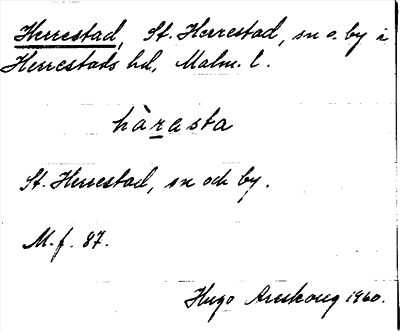 Herrestad, St. Herrestad, sn o. by i
Herrestads hd, Malm. l.
hàrasta
St. Herrestad, sn och by.
M. f. 87.
Hugo Areskoug 1960.